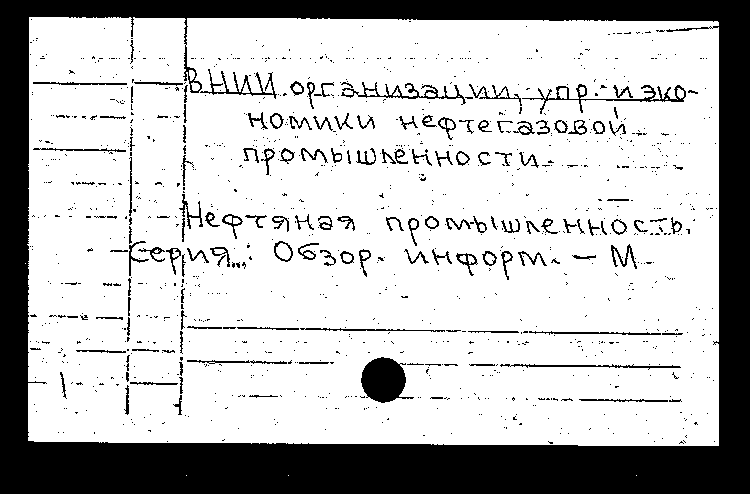 ВНИИ организации, упр. и эко-
номики нефтегазовой
промышленности.
Нефтяная промышленность.
Серия„,: Обзор. информ. — М